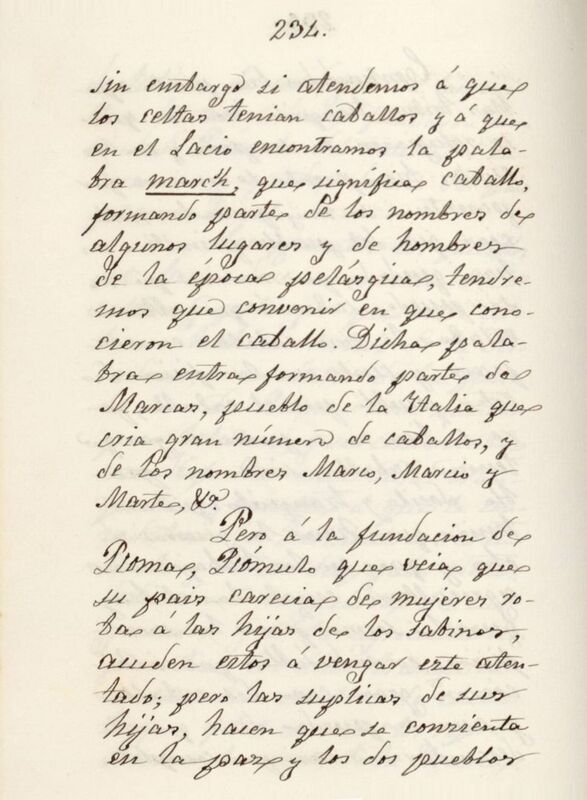 234.
sin embargo si atendemos á que
los celtas tenian caballos y á que
en el Lacio encontramos la pala-
bra march, que significa caballo,
formando parte de los nombres de
algunos lugares y de hombres
de la época pelásgica, tendre-
mos que convenir en que cono-
cieron el caballo. Dicha pala-
bra entra formando parte de
Marcas, pueblo de la Italia que
cria gran número de caballos, y
de los nombres Marco, Marcio y
Marte, &ª.
Pero á la fundacion de
Roma, Rómulo que veia que
su pais carecia de mujeres ro-
ba á las hijas de los sabinos,
acuden estos á vengar este aten-
tado; pero las suplicas de sus
hijas, hacen que se consienta
en la paz y los dos pueblos